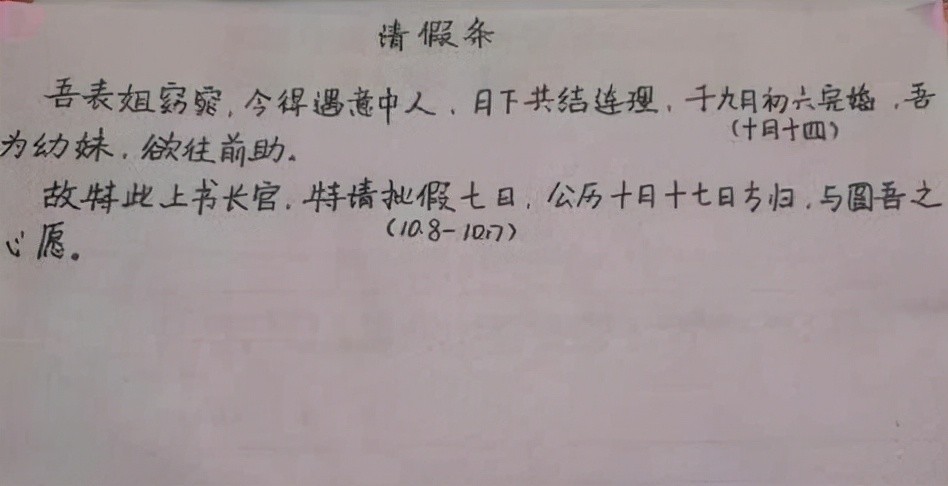 请假条
吾表姐窈窕,今得遇意中人,月下共结连理,于九月初六完婚,吾
(十月十四)
为幼妹,欲往前助。
故特此上书长官,特请批假七日,公历十月十七日方归,与圆吾之
(10.8-10.17)
心愿。